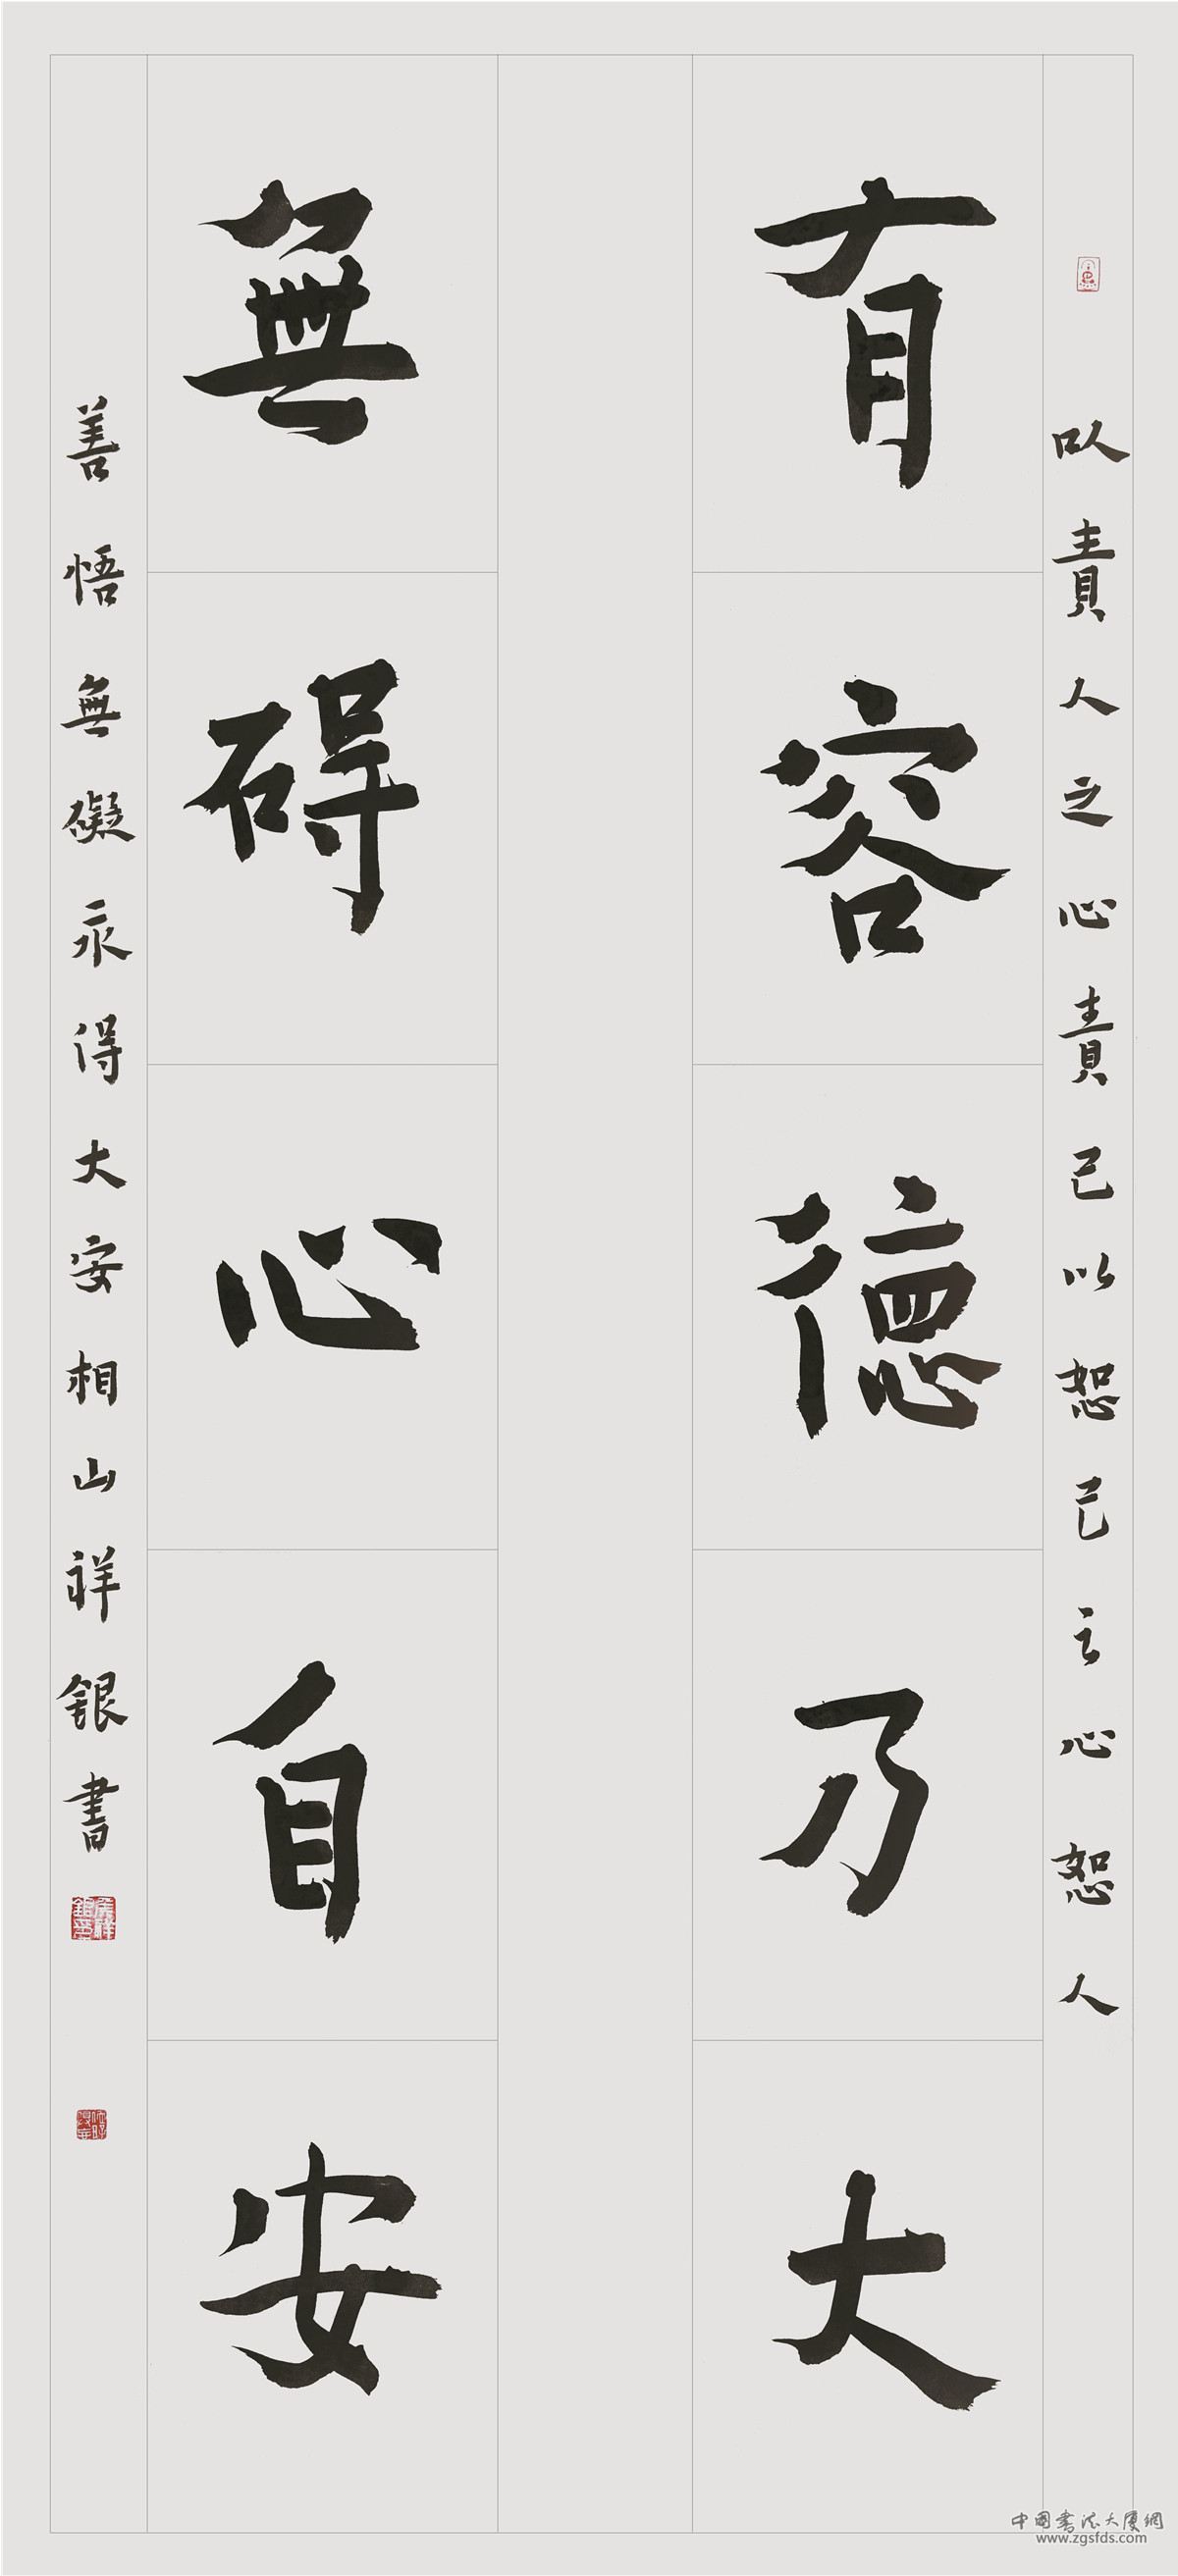 以責人之心責己以恕己之心恕人
有容德乃大
無碍心自安
善悟無礙永得大安相山祥銀書
中国书法大厦網
www.zgsfds.com